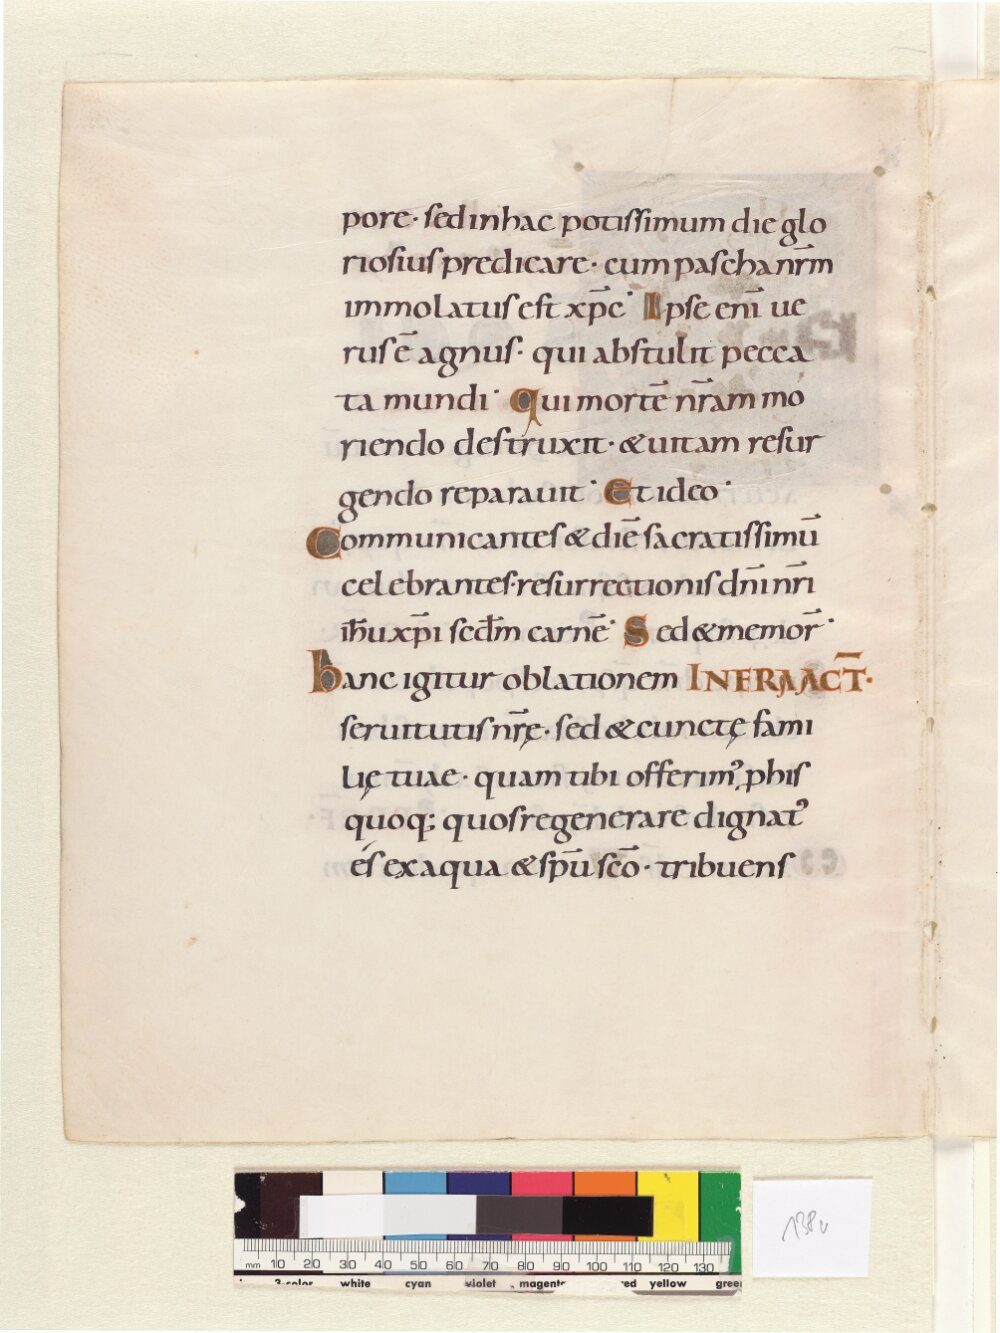 pore· sed in hac potissimum die glo
riosius predicare· cum pascha nr̄m
immolatus est xp̄c· Ipse enī ue
rus ē agnus· qui abstulit pecca
ta mundi· Qui mortē nr̄am mo
riendo destruxit· &uitam resur
gendo reparauit· Et ideo·
Communicantes & diē sacratissimū
celebrantes· resurrectionis dn̄i nr̄i
ih̄u xp̄i scd̄m carnē· Sed & memor̄·
hanc igitur oblationem INFRA ACT̄·
seruitutis nr̄ę· sed & cunctę fami
lię tuae· quam tibi offerim' p his
quoq; quos regenerare dignat'
és ex aqua & sp̄u scō· tribuens
138v
mm 10 20 30 40 50 60 70 80 90 100 110 120 130
3-color white cyan violet magenta red yellow green